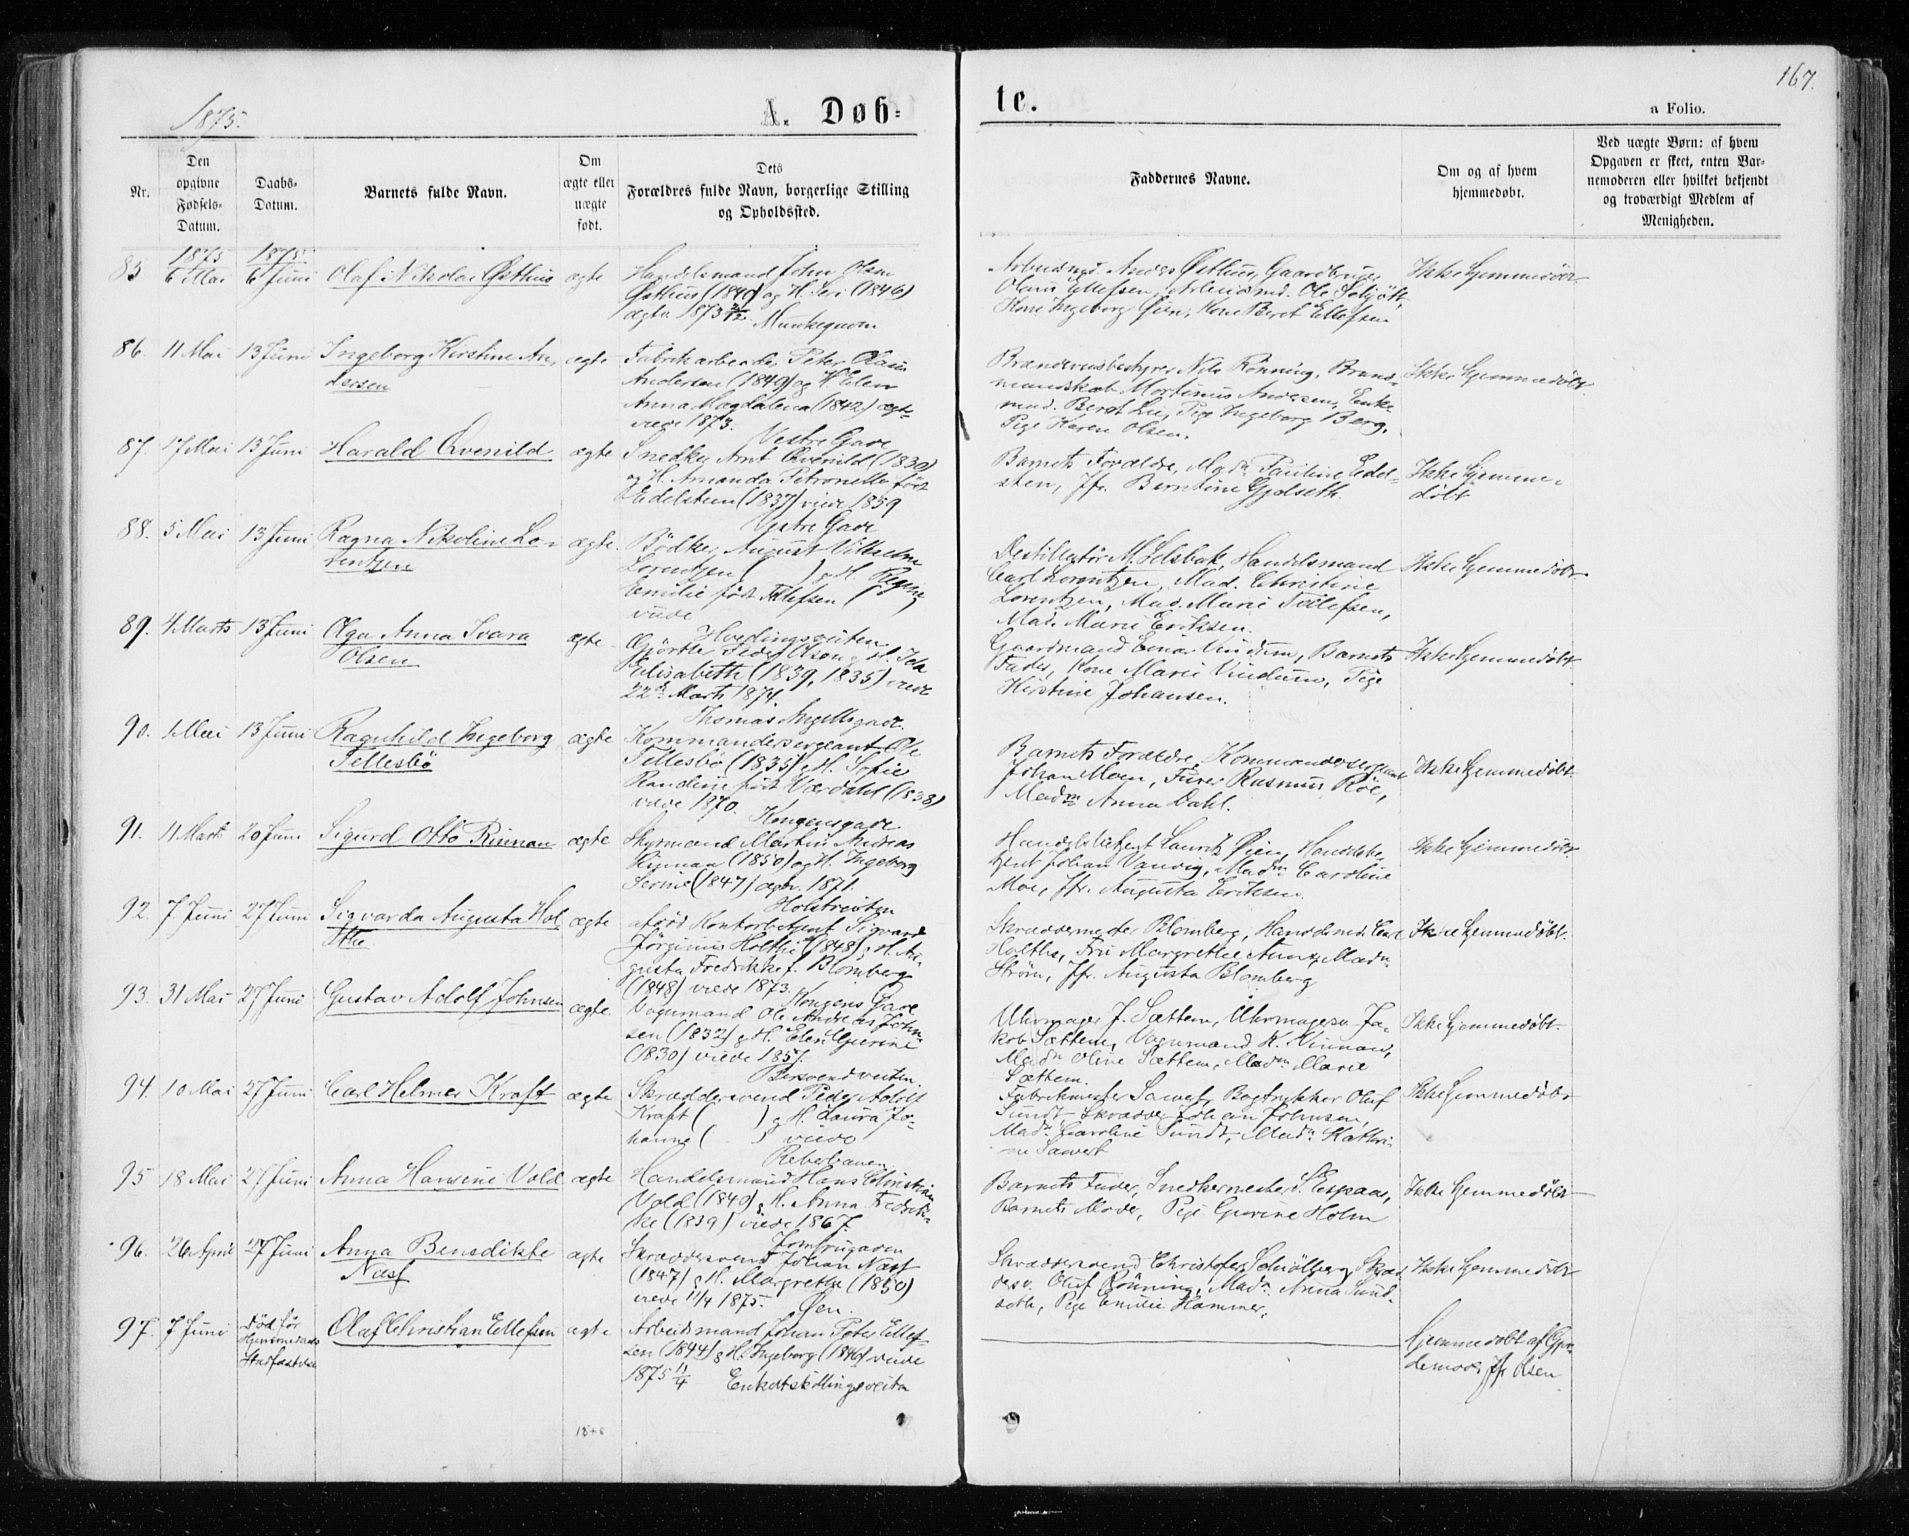 1875.
A. Døb-
te.
167.
a Folio.
Nr.
Den opgivne Fødsels-Datum.
Daabs-Datum.
Barnets fulde Navn.
Om ægte eller uægte født.
Dets Forældres fulde Navn, borgerlige Stilling og Opholdssted.
Faddernes Navne.
Om og af hvem hjemmedøbt.
Ved uægte Børn: af hvem Opgaven er skeet, enten Barnemoderen eller hvilket bekjendt og troværdigt Medlem af Menigheden.
1875 1875
85 6 Mai 6 Juni Olaf Nikolai Østhus ægte
Handelsmand John Olsen
Østhus (1840) og H. Seri (1846)
ægtev 1873 Munkegaden
Arbeidsmd. Anders Østhus, Gaardbruger
Olaus Ellefsen, Arbeidsmd. Ole
Kone Ingeborg Øien, Kone Beret Ellefsen
Ikke hjemmedøbt
86. 11 Mai 13 Juni Ingeborg Kirstine An-
dersen
ægte
Fabrikarbeider Peter Olaus
Andersen (1849) og H. Elen
Anna Magdalena (1842) ægte-
viede 1873.
Vestre Gade
Brandvæsbestyrer Nils Rönning, Brand-
mandskab Mortinus Andersen, Enke-
mad. Beret Lie, Pige Ingeborg Berg,
Pige Karen Olsen.
Ikke hjemmedøbt
87. 17 Mai 13 Juni Harald Qvenild ægte
Snedker Arnt Qvenild (1830)
og H. Amanda Petronelle født
Edelsteen (1837) viede 1859
Vestre Gade
Barnets Forældre, Madm Pauline Edel-
steen, Jfr. Berntine Gjelseth.
Ikke hjemme-
døbt
88. 5 Mai 13 Juni Ragna Nikoline Lo-
rentzen
ægte.
Bødker August Vilhelm
Lorentzen ( ) g H. Regine
Emilie født Tellefsen ( )
viede
Hvedingsveiten
Destillatør M. Selsbak, Handelsmand
Carl Lorentzen, Mad. Christine
Lorentzen, Mad. Marie Tellefsen,
Mad. Marie Eriksen.
Ikke hjemmedøbt
89. 4 Marts 13 Juni Olga Anna Svara
Olsen
ægte
Gjørtler Peder Olsen g H. Ida
Elisabeth (1839, 1835) viede
22de Marts 1874.
Thomas Angellsgade.
Gaardmand Einar Vindum, Barnets
Fader, Kone Marie Vindum, Pige
Kirstine Johansen.
Ikke hjemmedøbt
90. 1 Mai 13 Juni Ragnhild Ingeborg
Tellesbö
ægte
Kommandersergeant Ole
Tellesbö (1835) g H. Sofie
Randine født Værdahl (1838)
viede 1870.
Kongensgade
Barnets Forældre, Kommandersergeant
Johan Moen, Furer Rasmus Röe,
Madm Anna Dahl.
Ikke hjemmedøbt
91. 11 Marts 20 Juni Sigurd Otto Rinnan ægte
Styrmand Martin Andreas
Rinnan (1850) og H. Ingeborg
Serine (1847) ægtev. 1871.
Holstveiten
Handelsbetjent Laurits Øien, Handelsbe-
tjent Johan Vanvig, Madm Caroline
Moe, Jfr. Augusta Eriksen.
Ikke hjemmedøbt
92. 7 Juni 27 Juni Sigvarda Augusta Hol-
the
ægte
afdød Kontorbetjent Sigvard
Jørginus Holthe (1848) g H. Au-
gusta Fredrikke f. Blomberg
(1848) viede 1873.
Kongens Gade
Skræddermester Blomberg, Handelsmd. Carl
Holthe, Fru Margrethe Aune, Madm
Strøm, Jfr. Augusta Blomberg
Ikke hjemmedøbt.
93. 31 Mai 27 Juni Gustav Adolf Johnsen ægte
Vognmand Ole Andreas John-
sen (1832) g H. Elen Gurine
(1830) viede 1857.
Uhrmager J. Sættem, Uhrmagersv. Ja-
kob Sættem, Vognmand K. Kinnan,
Madm Oline Sættem, Madm Marie
Sættem.
Ikke hjemmedøbt
94. 10 Mai 27 Juni Carl Helmer Kraft ægte
Skræddersvend Peder Adolf
Kraft ( ) g H. Laura Jo-
hanne ( ) viede
Reberbanen
Fabrikmester Sawert, Bogtrykker Oluf
Sundt, Skrædder Johan Johnsen,
Madm Caroline Sundt, Madm Kathri-
ne Sawert
Ikke hjemmedøbt
95 18 Mai 27 Juni Anna Hansine Vold ægte
Handelsmand Hans Christian
Vold (1840) g H. Anna Fredrik-
ke (1839) viede 1867.
Jomfrugaden
Barnets Fader, Snedkermester S. Espaas,
Barnets Moder, Pige Gurine Holm
Ikke hjemmedøbt
96. 26 April 27 Juni Anna Bensdikte
Næss
ægte
Skræddersvend Johan Næss
(1847) g H. Margrethe (1850)
viede 11/4 1875. Øen.
Skræddersvend Christofer Schiølberg, Skræd-
dersv. Oluf Rönning, Madm Anna Sund-
seth, Pige Emilie Hammer.
Ikke hjemmedøbt
97. 7 Juni Død før
Hjemmedaabs
Stadfæstelse
Olaf Christian Ellefsen ægte
Arbeidsmand Johan Peter Ellef-
sen (1844) g H. Ingeborg (1846) viede
1875 11/4 Enkeltskillingsveiten
Hjemmedøbt af Gjor-
demoder Jfr. Olsen